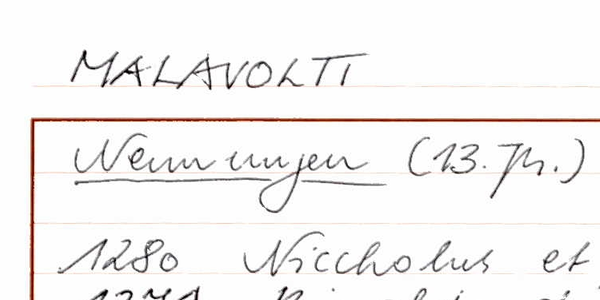 MALAVOLTI
Nennungen (13. Jh.)
1280 Niccholus et